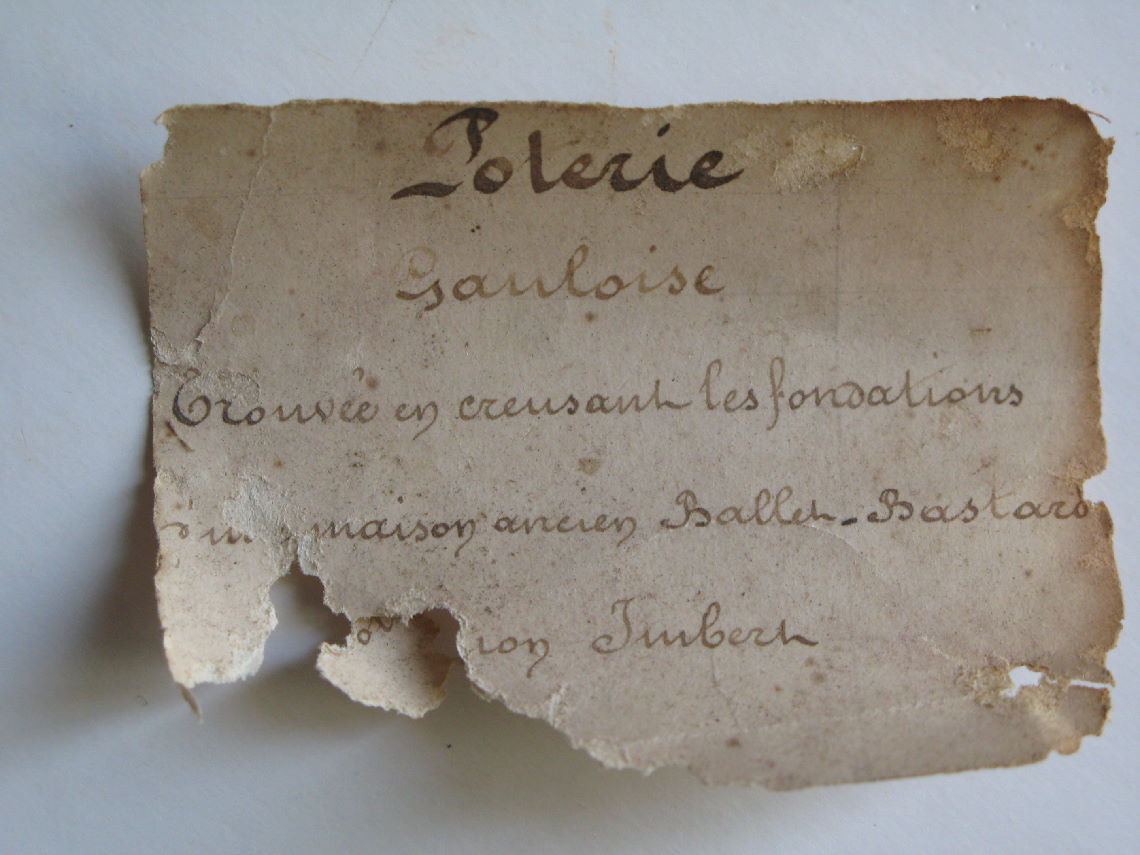 Poterie
Gauloise
Trouvée en creusant les fondations
maison ancien Ballet-Bastard
Imbert